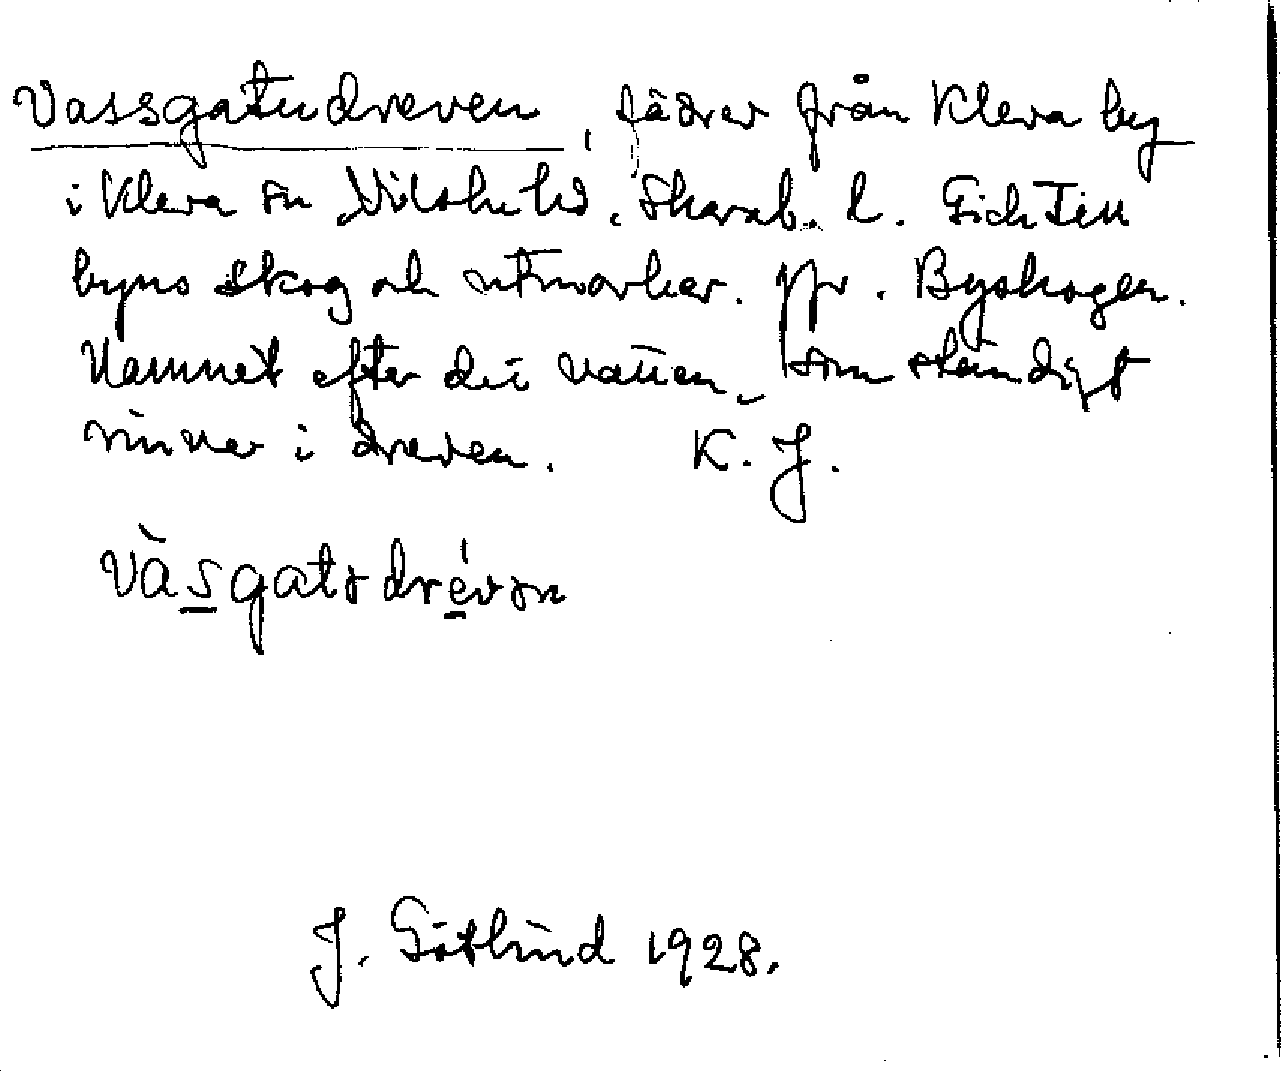 Vassgatudreven, fädrev från Kleva by
i Kleva sn Vilske hd. Skarab. l. Gick till
byns skog och utmarker. Jfr. Byskogen.
Namnet efter det vatten, som ständigt
rinner i dreven. K. J.
vàsgatədrévən
J. Götlind 1928.